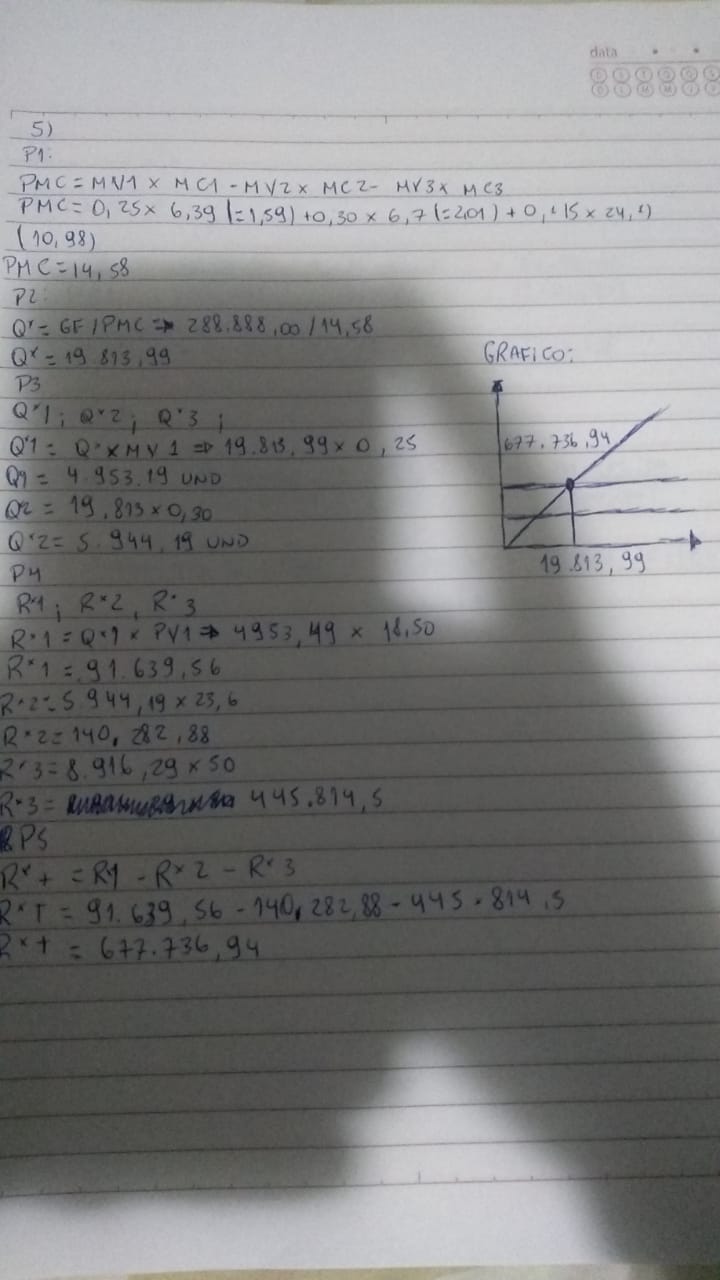 data
5)
P1:
PMC = MV1 x MC1 - MV2 x MC2 - MV3 x MC3
PMC = 0,25 x 6,39 (=1,59) + 0,30 x 6,7 (=2,01) + 0,45 x 24,
(10,98)
PMC = 14,58
P2:
Q* = GF/PMC => 288.888,00/14,58
Q* = 19.813,99
GRAFICO:
P3
Q*1; Q*2; Q*3;
Q*1 = Q* x MV1 => 19.813,99 x 0,25
Q1 = 4.953.19 UND
Q2 = 19.813 x 0,30
Q*2 = 5.944,19 UND
677.736,94
19.813,99
P4
R*1; R*2, R*3
R*1 = Q*1 x PV1 => 4953,49 x 18,50
R*1 = 91.639,56
R*2 = 5.944,19 x 23,6
R*2 = 140,282,88
R*3 = 8.916,29 x 50
R*3 = 445.814,5
P5
R*+ = R1 - R*2 - R*3
R*T = 91.639,56 - 140,282,88 - 445.814,5
R*+ = 677.736,94